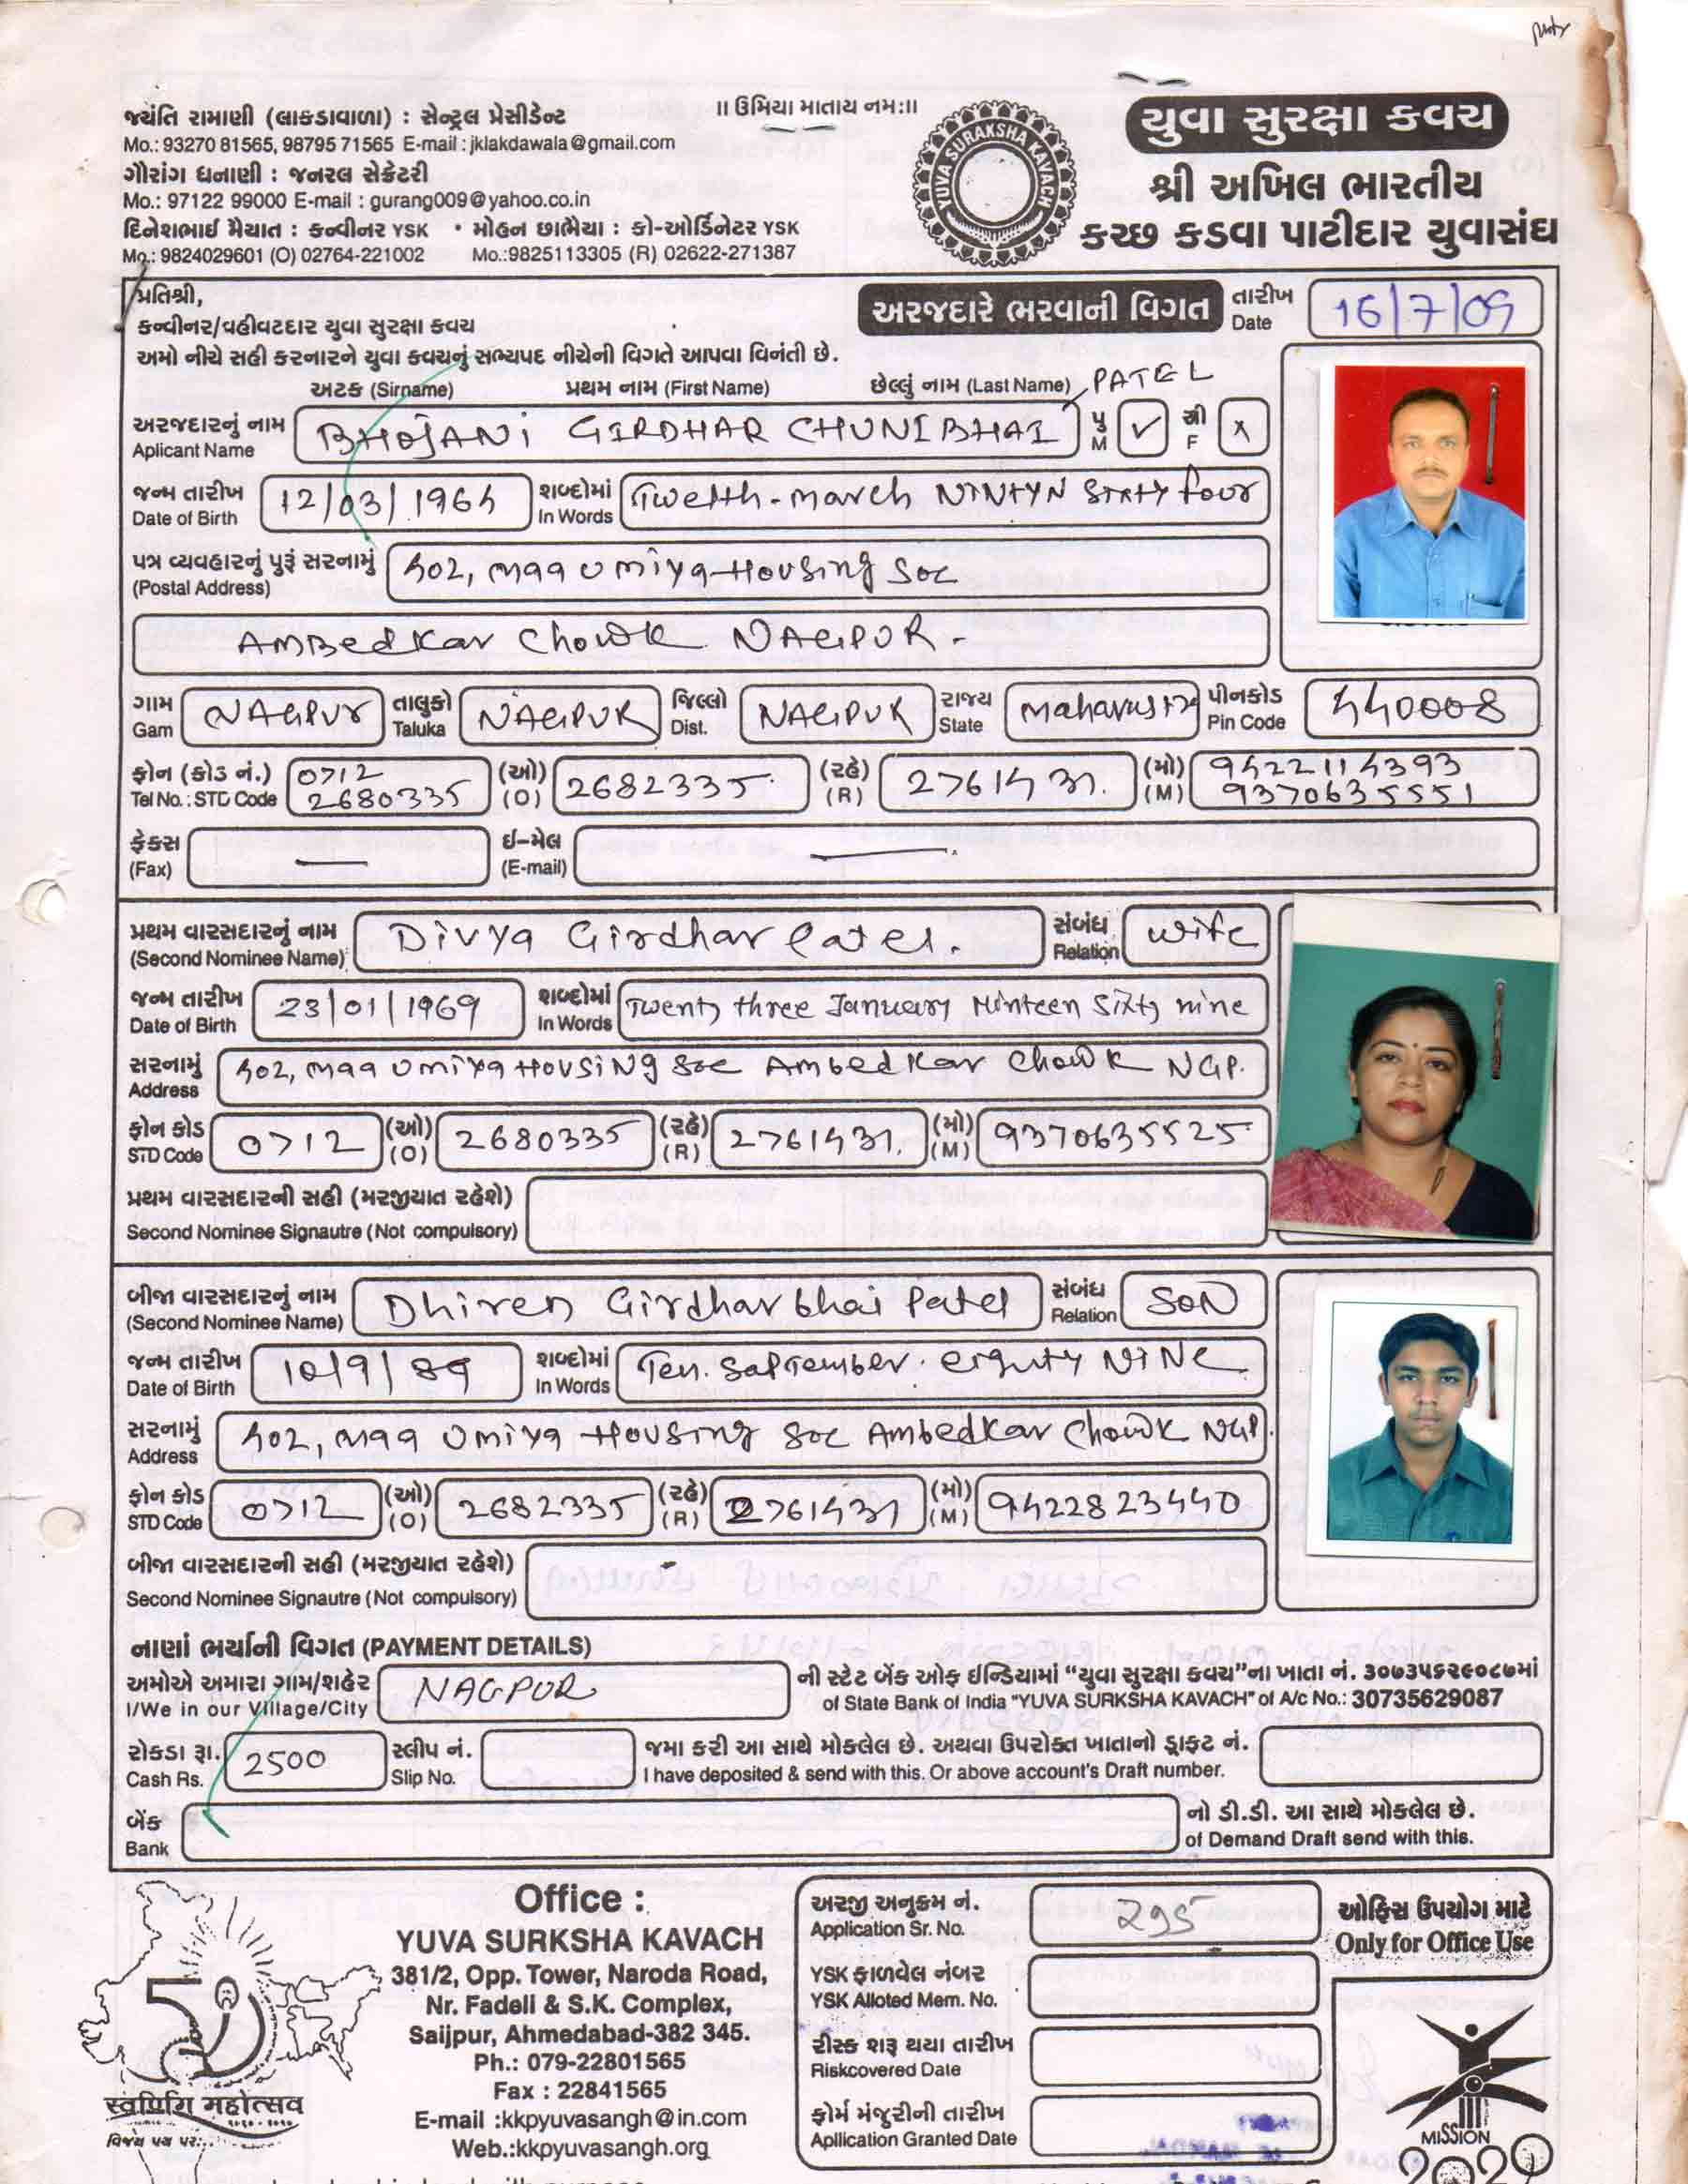 ॥ ઉમિયા માતાય નમઃ॥
જ્યંતિ રામાણી (લાકડાવાળા) : સેન્ટ્રલ પ્રેસીડેન્ટ
Mo.: 93270 81565, 98795 71565 E-mail : jklakdawala@gmail.com
ગૌરાંગ ધનાણી : જનરલ સેક્રેટરી
Mo.: 97122 99000 E-mail : gurang009@yahoo.co.in
દિનેશભાઈ મૈયાત : કન્વીનર YSK • મોહન છાભૈયા : કો-ઓર્ડિનેટર YSK
Mo.: 9824029601 (O) 02764-221002 Mo.:9825113305 (R) 02622-271387
YUVA SURAKSHA KAVACH
યુવા સુરક્ષા કવચ
શ્રી અખિલ ભારતીય
કચ્છ કડવા પાટીદાર યુવાસંઘ
પ્રતિશ્રી,
કન્વીનર/વહીવટદાર યુવા સુરક્ષા કવચ
અમો નીચે સહી કરનારને યુવા કવચનું સભ્યપદ નીચેની વિગતે આપવા વિનંતી છે.
અરજદારે ભરવાની વિગત
તારીખ Date 16/7/09
અટક (Sirname) પ્રથમ નામ (First Name) છેલ્લું નામ (Last Name) PATEL
અરજદારનું નામ Aplicant Name BHOJANI GIRDHAR CHUNIBHAI પુ M ✓ સ્ત્રી F x
જન્મ તારીખ Date of Birth 12/03/1964 શબ્દોમાં In Words Twelth-march NINTYN SIXTY four
પત્ર વ્યવહારનું પુરૂં સરનામું (Postal Address) 402, maa umiya Housing Soc
AmBedkar Chowk NAGPUR.
ગામ Gam NAGPUR તાલુકો Taluka NAGPUR જિલ્લો Dist. NAGPUR રાજ્ય State પીનકોડ Pin Code 440008
ફોન (કોડ નં.) Tel No. : STD Code 0712 2680335 (ઓ) (O) 2682335 (રહે) (R) 2761431 (મો) (M) 9422114393 9370635551
ફેકસ (Fax) — ઈ-મેલ (E-mail) —
પ્રથમ વારસદારનું નામ (Second Nominee Name) Divya Girdhar Patel. સંબંધ Relation wife
જન્મ તારીખ Date of Birth 23/01/1969 શબ્દોમાં In Words Twenty three January Ninteen Sixty nine
સરનામું Address 402, maa umiya Housing Soc Ambedkar Chowk NGP.
ફોન કોડ STD Code 0712 (ઓ) (O) 2680335 (રહે) (R) 2761431. (મો) (M) 9370635525
પ્રથમ વારસદારની સહી (મરજીયાત રહેશે)
Second Nominee Signautre (Not compulsory)
બીજા વારસદારનું નામ (Second Nominee Name) Dhiren Girdharbhai Patel સંબંધ Relation SON
જન્મ તારીખ Date of Birth 10/9/89 શબ્દોમાં In Words Ten. September. NINE
સરનામું Address 402, maa Umiya Housing Soc Ambedkar Chowk NGP.
ફોન કોડ STD Code 0712 (ઓ) (O) 2682335 (રહે) (R) 2761431 (મો) (M) 9422823440
બીજા વારસદારની સહી (મરજીયાત રહેશે)
Second Nominee Signautre (Not compulsory)
નાણાં ભર્યાની વિગત (PAYMENT DETAILS)
અમોએ અમારા ગામ/શહેર NAGPUR ની સ્ટેટ બેંક ઓફ ઈન્ડિયામાં “યુવા સુરક્ષા કવચ”ના ખાતા નં. ૩૦૭૩૫૬૨૯૦૮૭માં
I/We in our Village/City of State Bank of India "YUVA SURKSHA KAVACH" of A/c No.: 30735629087
રોકડા રૂા. 2500 સ્લીપ નં. જમા કરી આ સાથે મોકલેલ છે. અથવા ઉપરોક્ત ખાતાનો ડ્રાફટ નં.
Cash Rs. Slip No. I have deposited & send with this. Or above account's Draft number.
બેંક નો ડી.ડી. આ સાથે મોકલેલ છે.
Bank of Demand Draft send with this.
50
स्वर्णिम महोत्सव
Office :
YUVA SURKSHA KAVACH
381/2, Opp. Tower, Naroda Road,
Nr. Fadeli & S.K. Complex,
Saijpur, Ahmedabad-382 345.
Ph.: 079-22801565
Fax : 22841565
E-mail :kkpyuvasangh@in.com
Web.:kkpyuvasangh.org
અરજી અનુક્રમ નં. Application Sr. No. 295
ઓફિસ ઉપયોગ માટે
Only for Office Use
YSK ફાળવેલ નંબર
YSK Alloted Mem. No.
રીસ્ક શરૂ થયા તારીખ
Riskcovered Date
ફોર્મ મંજુરીની તારીખ
Apllication Granted Date
MISSION
2020